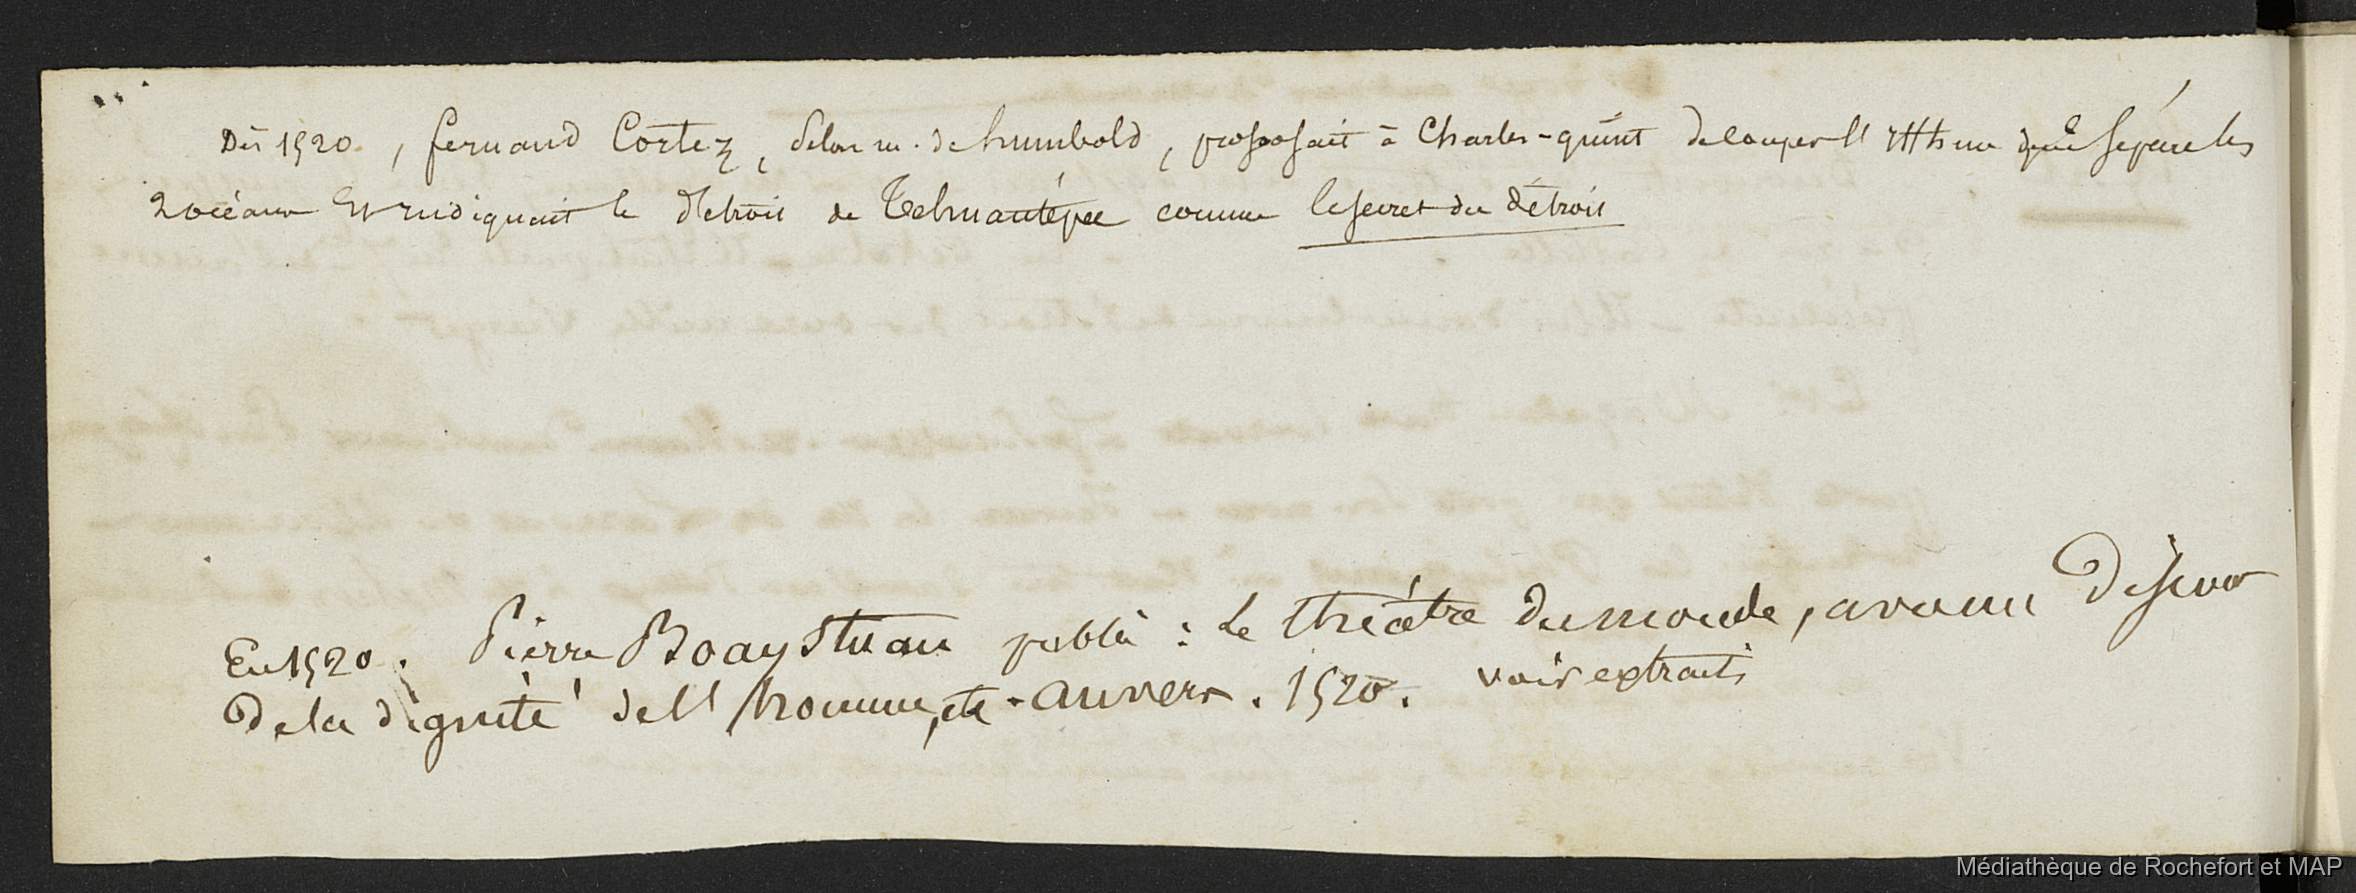 Dès 1520, fernand Cortez, selon m. de humbold, proposait à Charles-quint de couper l'isthme qui sépare les
2 océans et indiquait le détroit de Tehuantépec comme le secret du détroit
En 1520. Pierre Boaystuau publia : Le théâtre du monde, avec un discours
de la dignité de l'homme, etc. anvers. 1520. voir extraits
Médiathèque de Rochefort et MAP